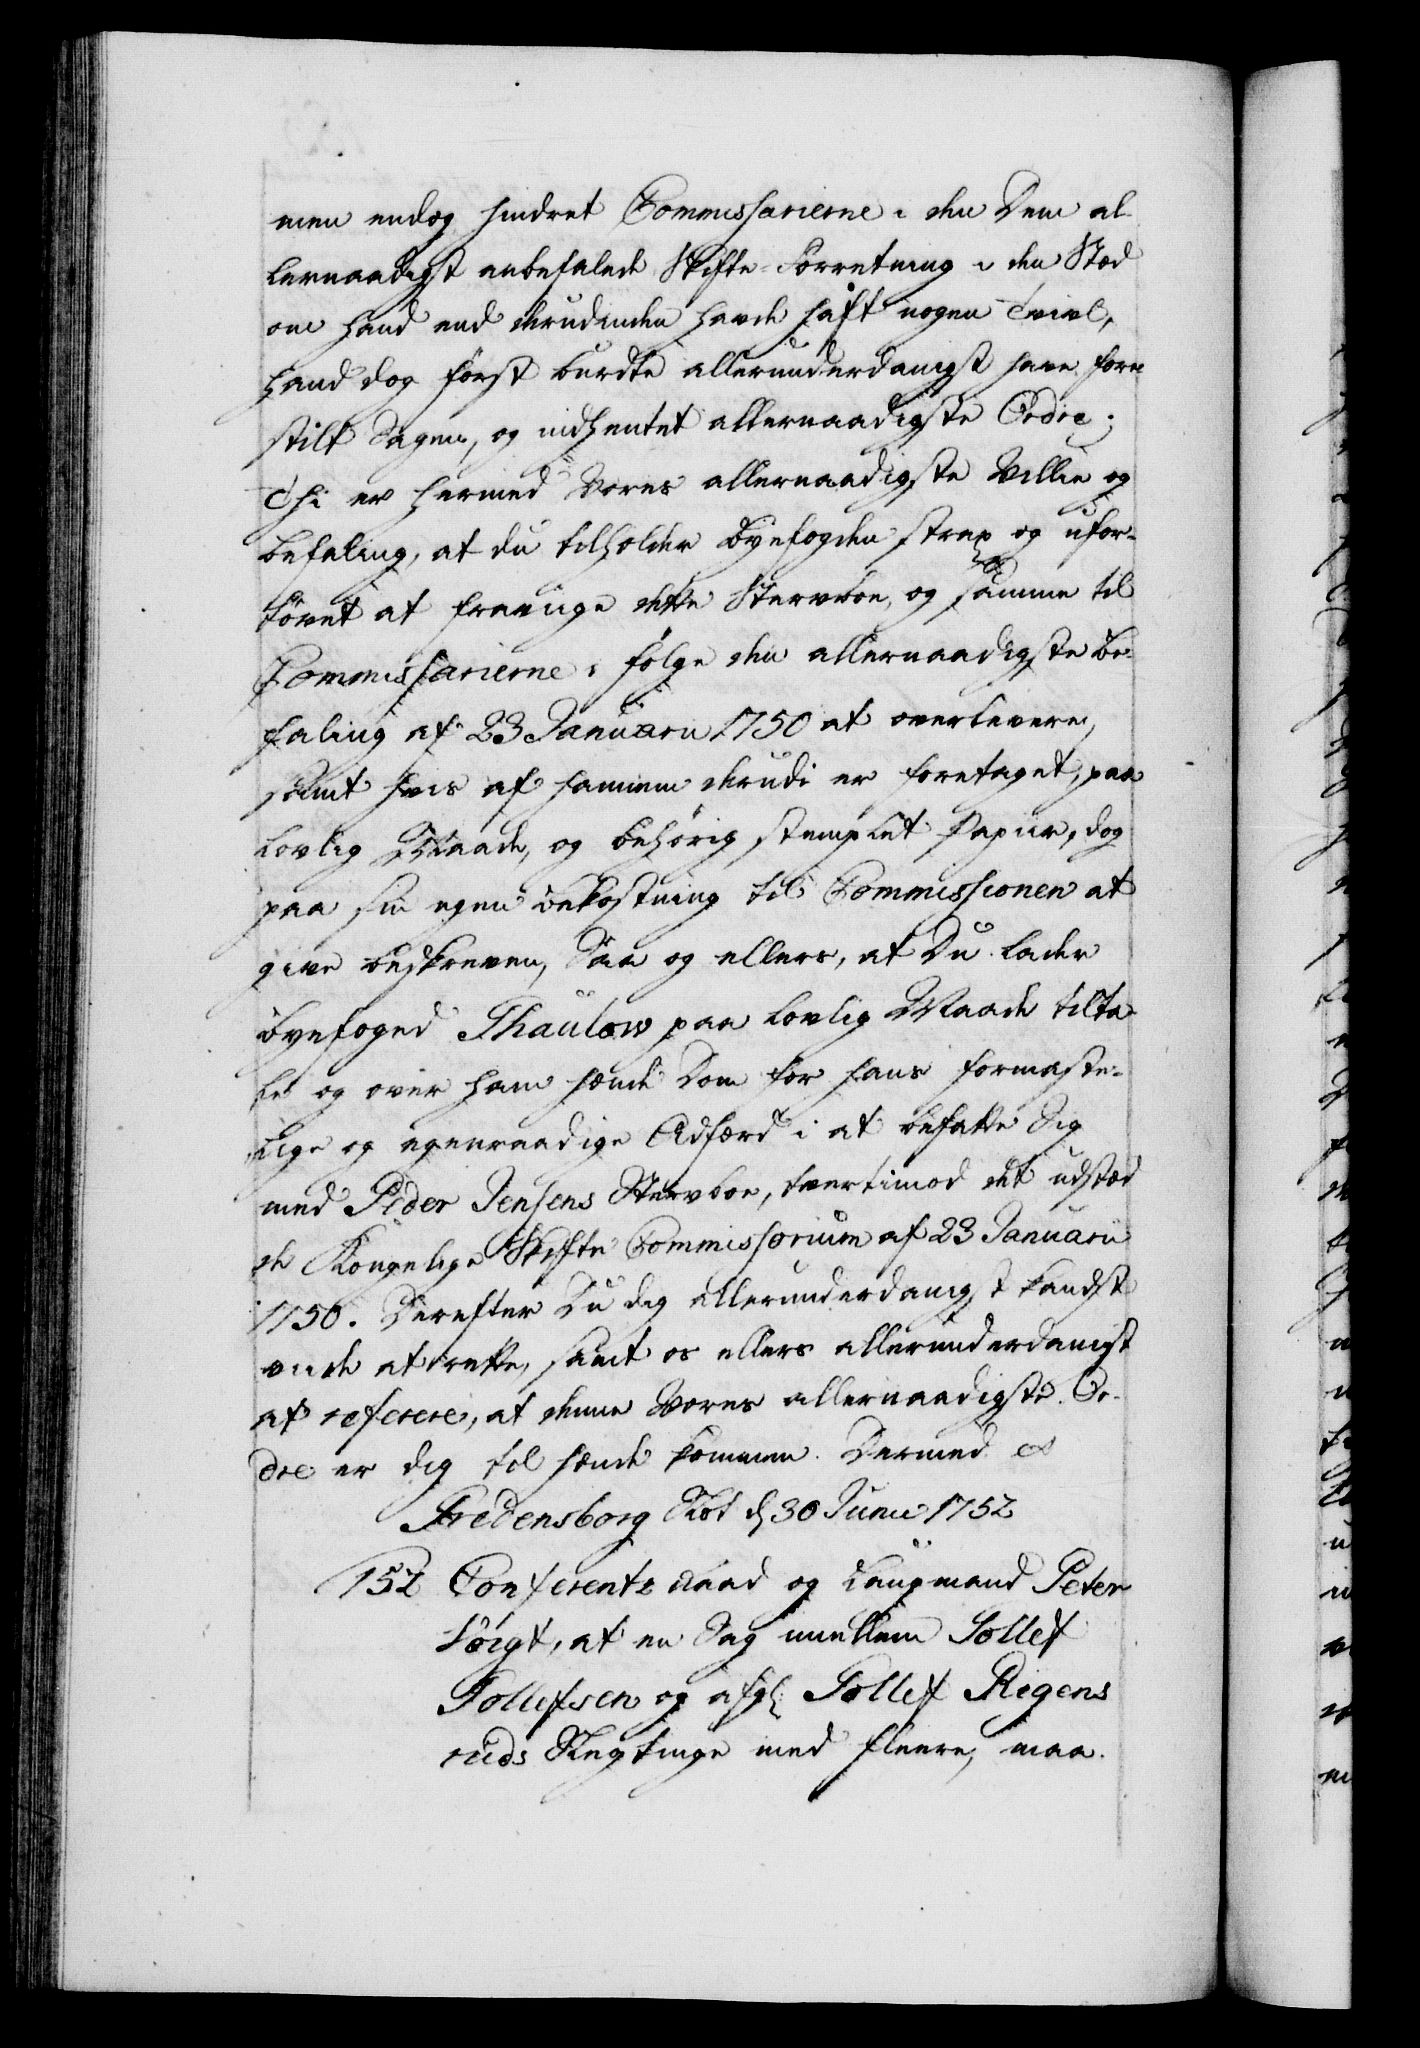 men endog hindret Commissarierne i den Dem al
lernaadigst anbefalede Skifte-Forretning i den Stæd
om hand end derudinden havde haft nogen Tvivl,
hand dog först burdte allerunderdanigst have fore
stilt Sagen, og indhentet allernaadigste Ordre;
Thi er hermed Vores allernaadigste Villie og
befaling, at du tilholder Byefogden strax og ufor-
tövet at fravige dette Sterboe, og samme til
Commissarierne i fölge den allernaadigste be-
faling af 23 Januarii 1750 at overlevere,
samt hvis af hannem derudi er foretaget, paa
lovlig Maade, og behörig stemplet Papiir, dog
paa sin egen bekostning til Commissionen at
give beskreven, Saa og ellers, at Du lader
byefoged Thaulow paa lovlig Maade tilta
le og over ham hænde Dom for hans formaste-
lige og egenraadige Adfærd i at befatte Sig
med Peder Jensens Sterboe, tvertimod det udstæd
de Kongelige Skifte Commissorium af 23 Januarii
1750. Derefter Du dig allerunderdanigst kandst
viide at rette, samt os ellers allerunderdanigst
at referere, at denne Vores allernaadigste Or-
dre er dig til hænde kommen. Dermed &
Fredensborg Slot d 30 Junii 1752
152 Conferentz Raad og Laugmand Peter
Vogt, at en Sag imellem Tollef
Tollefsen og afg: Tollef Rigens
ruds Slegtinge med fleere, maa